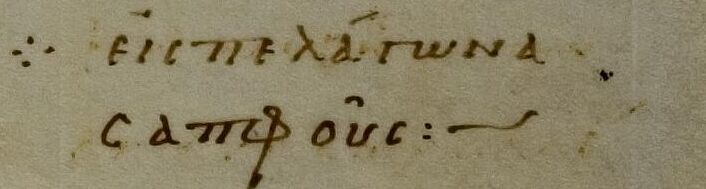 ⁘ εἰς πελάγωνα
σαπφοῦς :—